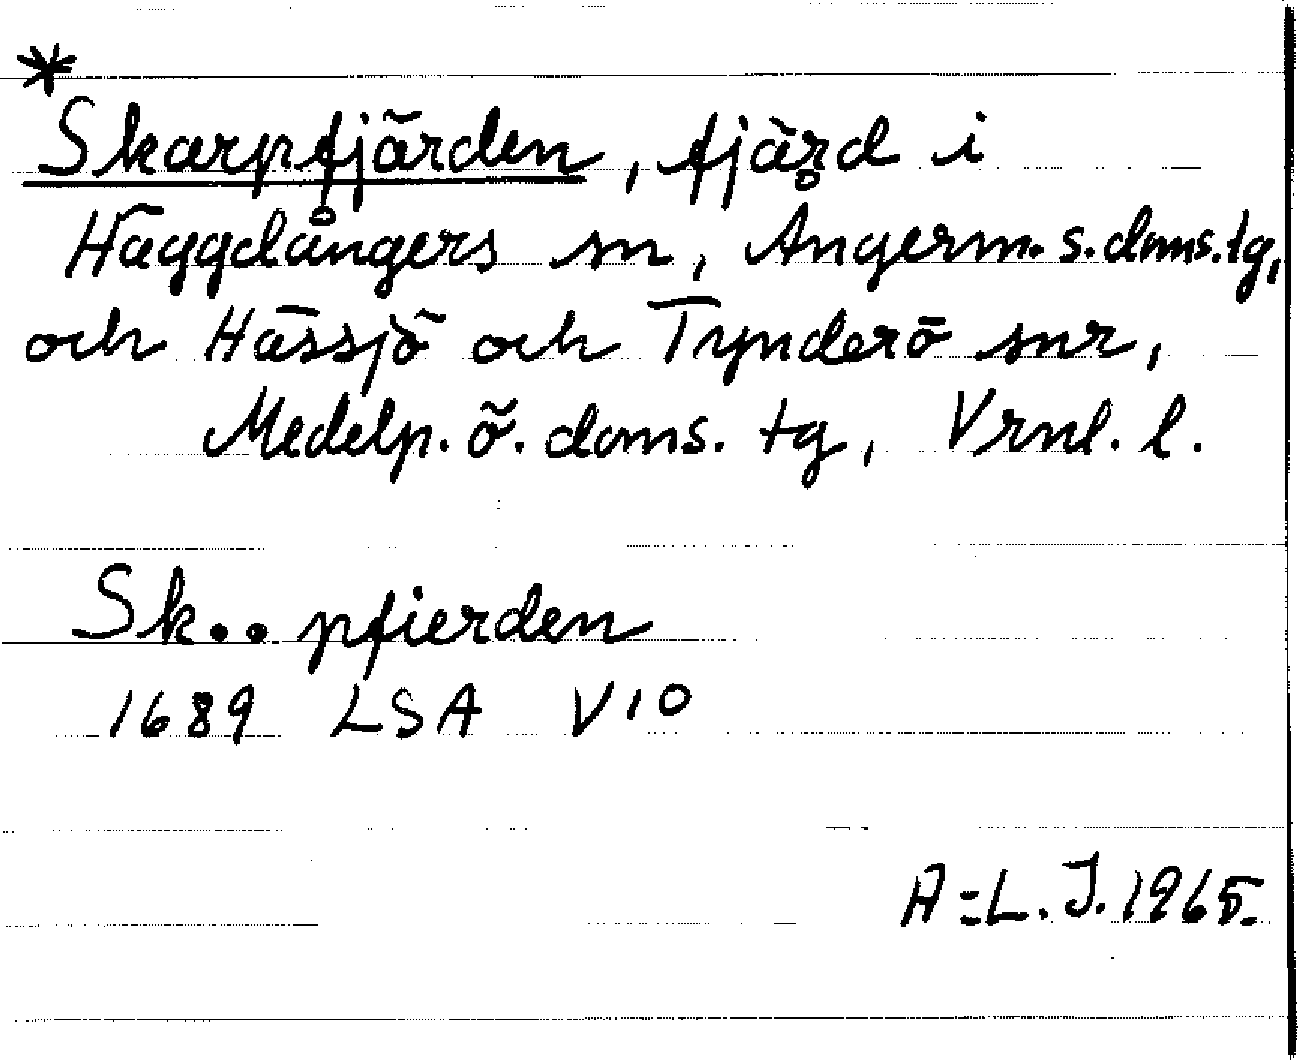 *
Skarpfjärden, fjärd i
Häggdångers sn, Ångerm. s. doms. tg,
och Hässjö och Tynderö snr,
Medelp. ö. doms. tg, Vrnl. l.
Sk.. pfierden
1689 LSA V10
A=L. J. 1965.